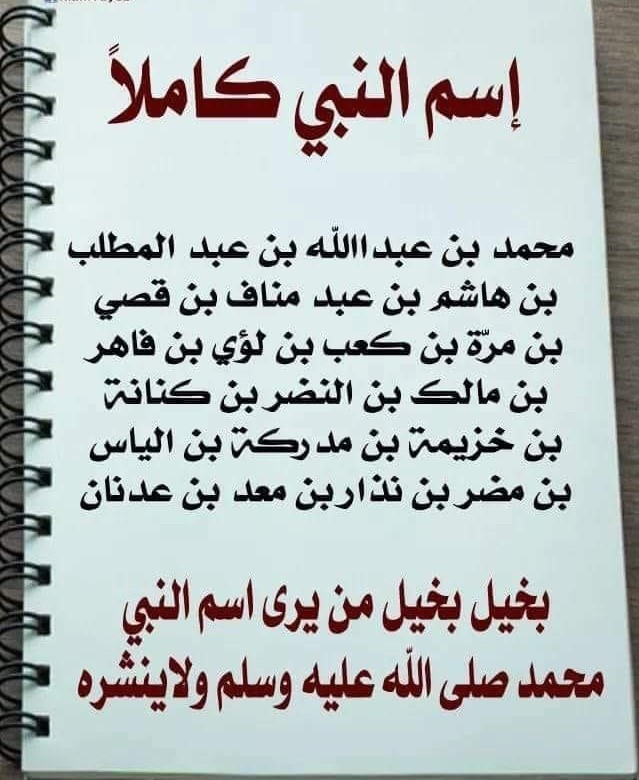 إسم النبي كاملاً
محمد بن عبداالله بن عبد المطلب
بن هاشم بن عبد مناف بن قصي
بن مرّة بن كعب بن لؤي بن فاهر
بن مالك بن النضر بن كنانة
بن خزيمة بن مدركة بن الياس
بن مضر بن نذار بن معد بن عدنان
بخيل بخيل من يرى اسم النبي
محمد صلى الله عليه وسلم ولاينشره